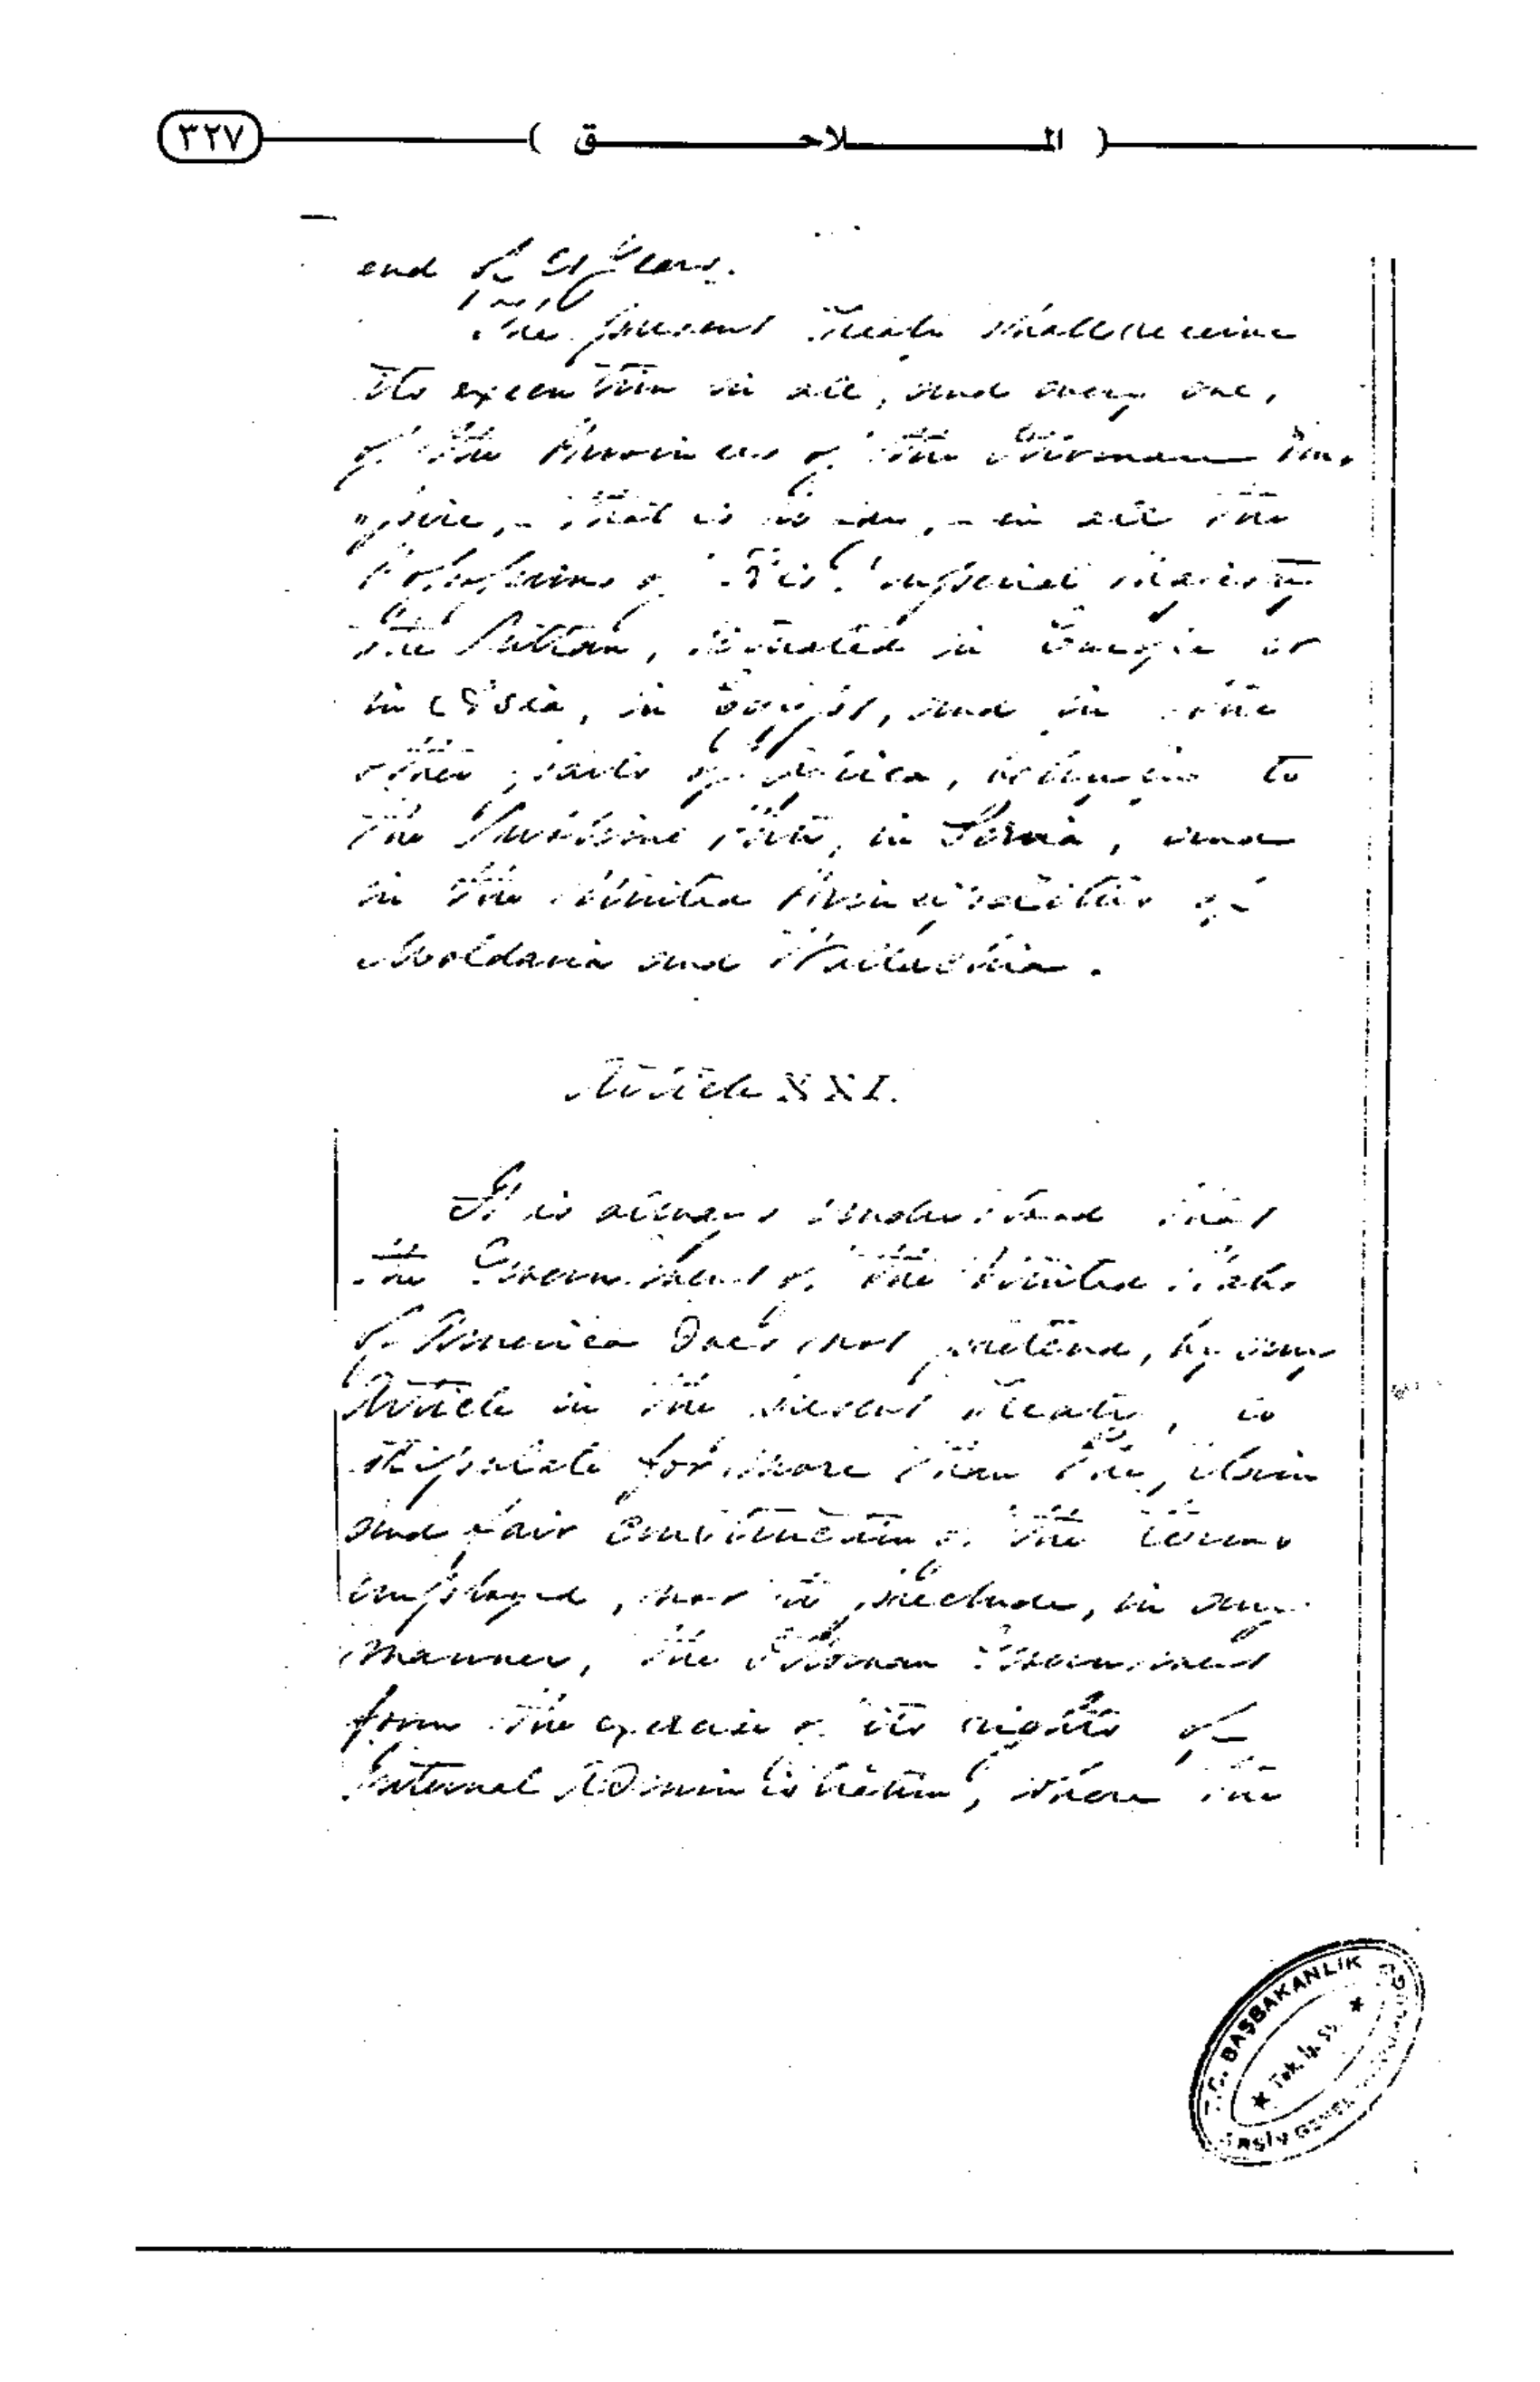 ٣٢٧
( المـــــلاحـــــــق )
end of 21 years.
The present Treaty shall receive
its execution in all, and every one,
of the Provinces of the Ottoman Em,
"pire, - that is to say, - in all the
Possessions of His Imperial Majesty
the Sultan, situated in Europe or
in Asia, in Egypt, and in the
other parts of Africa, belonging to
the Sublime Porte, in Servia, and
in the United Principalities of
Moldavia and Wallachia.
Article XXI.
It is always understood that
the Government of the United States
of America does not pretend, by any
Article in the present Treaty, to
stipulate for more than the plain
and fair construction of the terms
employed, nor to preclude, in any
manner, the Ottoman Government
from the exercise of its rights of
Internal Administration, where the
T.C. BAŞBAKANLIK